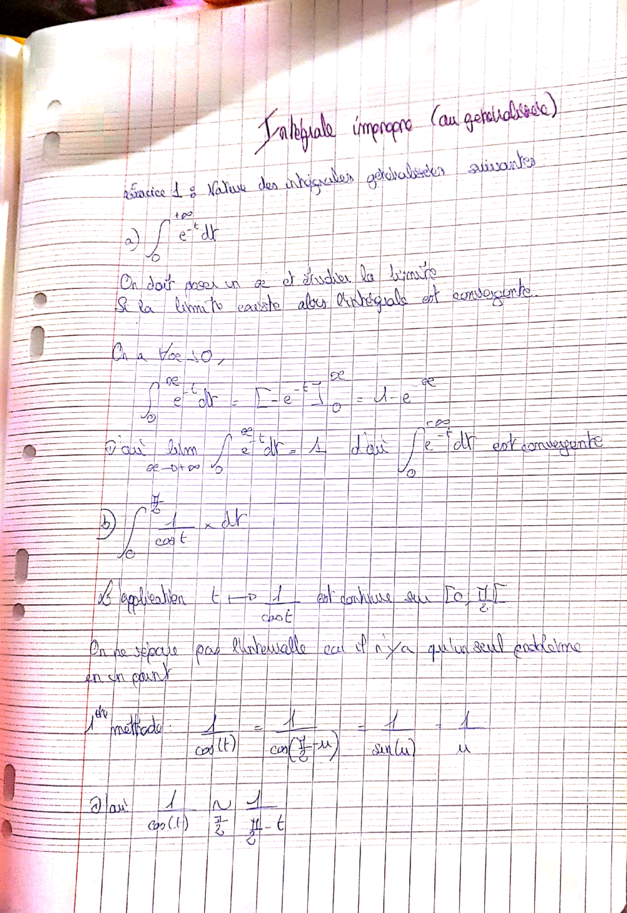 Intégrale impropre (ou généralisée)
Exercice 1 : Nature des intégrales généralisées suivantes
a) ∫₀^{+∞} e^{-t} dt
On doit poser un x et étudier la limite
Si la limite existe alors l'intégrale est convergente.
On a ∀x ≥ 0,
∫₀^x e^{-t} dt = [-e^{-t}]₀^x = 1 - e^{-x}
D'où lim_{x→+∞} ∫₀^x e^{-t} dt = 1 d'où ∫₀^{+∞} e^{-t} dt est convergente
b) ∫₀^{π/2} 1/cos t × dt
L'application t ↦ 1/cos t est continue sur [0, π/2[
On ne sépare pas l'intervalle car il n'y a qu'un seul problème
en un point
1ère méthode : 1/cos(t) = 1/cos(π/2 - u) = 1/sin(u) = 1/u
D'où 1/cos(t) ~_{π/2} 1/(π/2 - t)